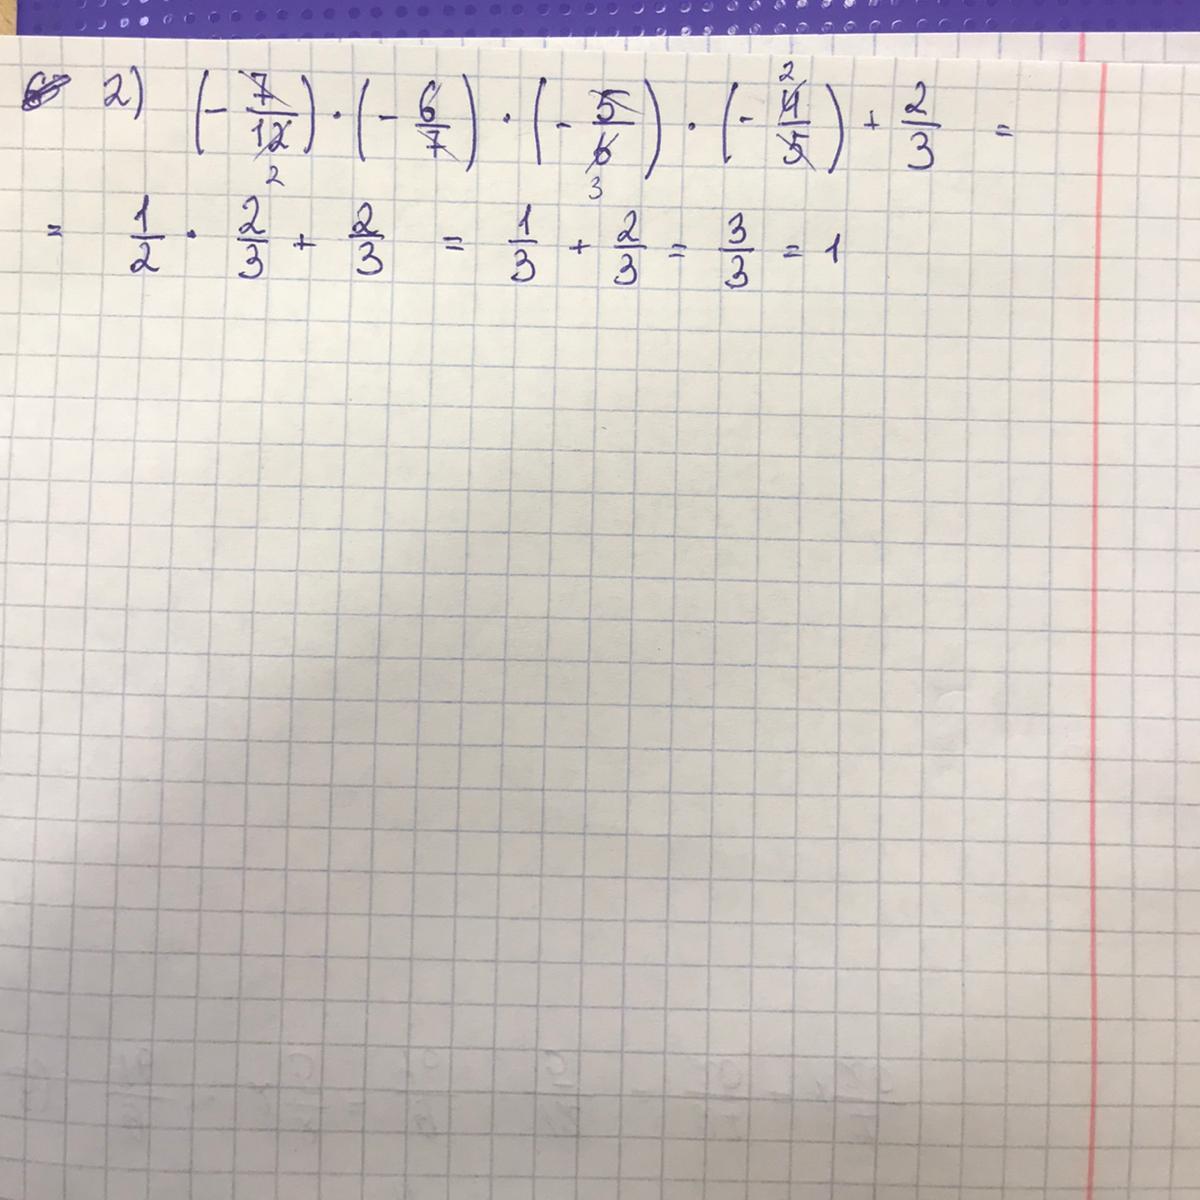 2) (- 7/12) · (- 6/7) · (- 5/6) · (- 4/5) + 2/3 =
= 1/2 · 2/3 + 2/3 = 1/3 + 2/3 = 3/3 = 1